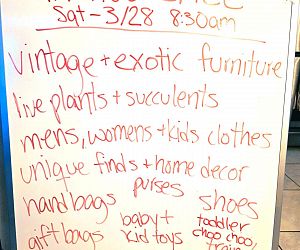 Sat - 3/28 8:30am
vintage + exotic furniture
live plants + succulents
mens, womens + kids clothes
unique finds + home decor
handbags purses shoes
gift bags baby + kid toys toddler choo choo train